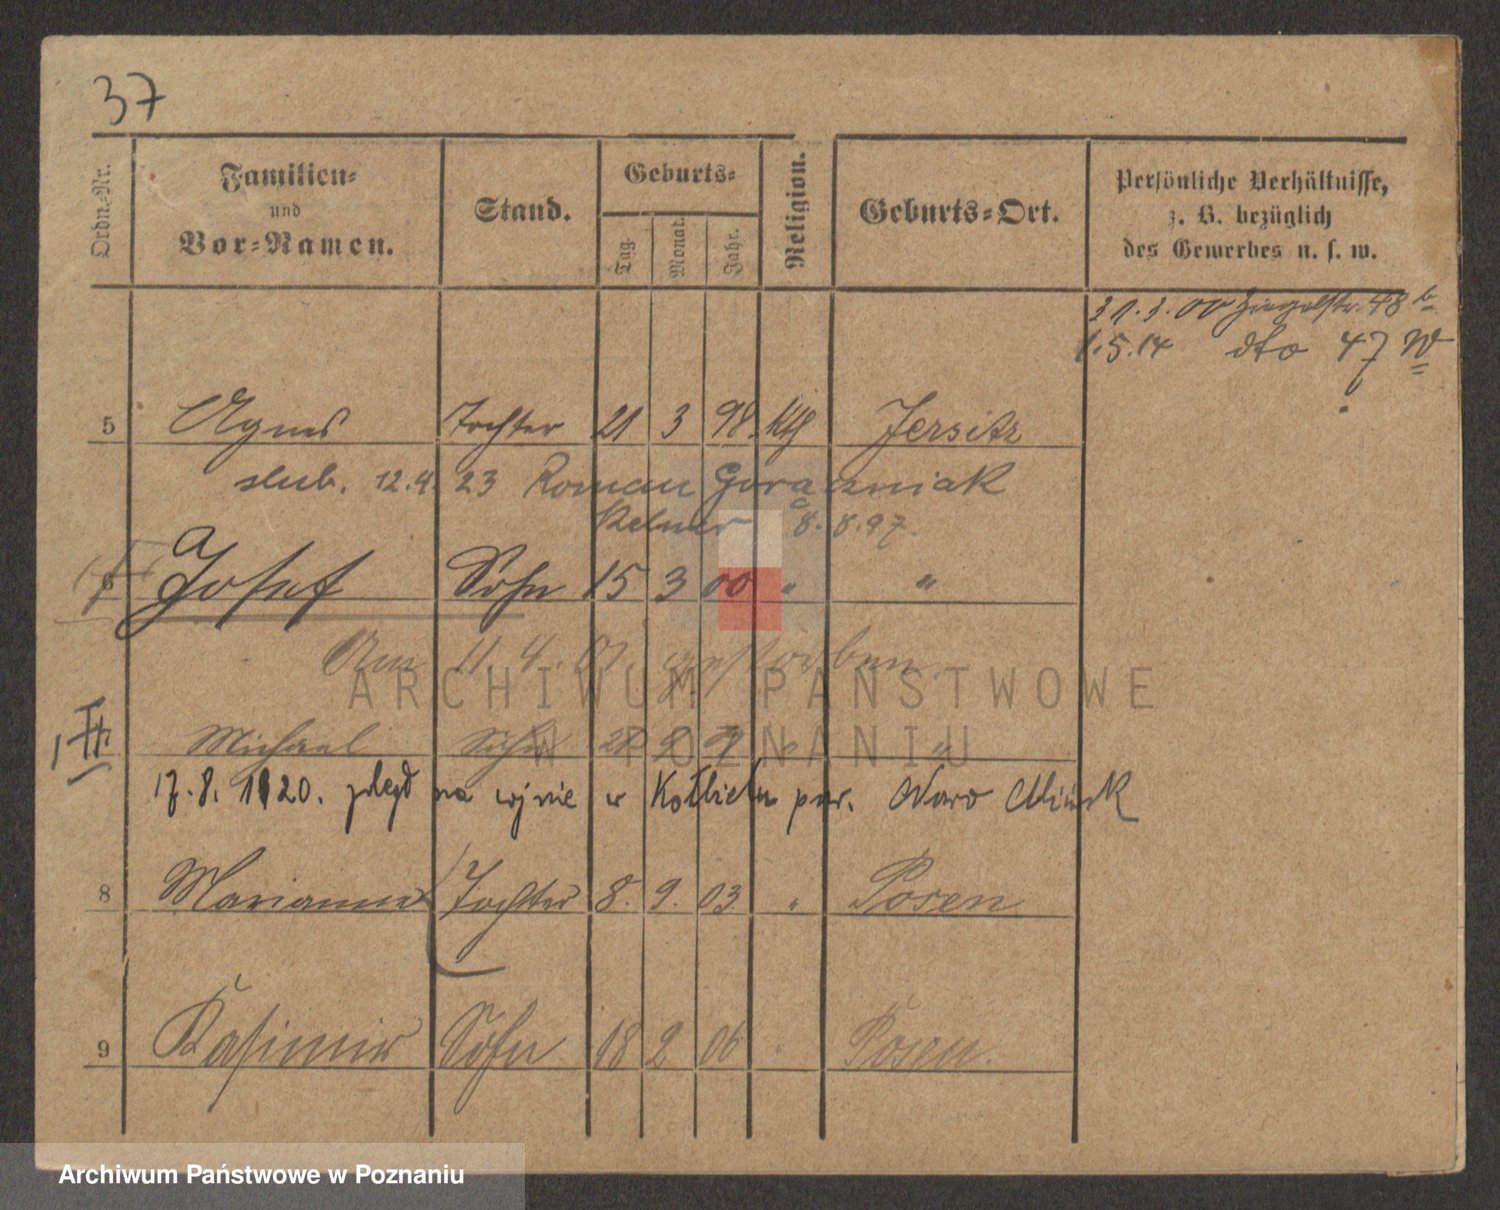 37
Ordn.-Nr.
Familien-
und
Vor-Namen.
Stand.
Geburts-
Tag.
Monat.
Jahr.
Religion.
Geburts-Ort.
Persönliche Verhältnisse,
z. B. bezüglich
des Gewerbes u. s. w.
31.3.00 Ziegelstr. 48 b
1.5.14 dto 47 W
5 Agnes Tochter 21 3 98 kth Jersitz
slub. 12.4. 23 Roman Gorączniak
Kelner 8.8.97.
6 Josef Sohn 15 3 00 " "
Am 11.4.01 gestorben
ARCHIWUM PAŃSTWOWE
W POZNANIU
Michael Sohn 9 " "
17.8.1920. poległ na wojnie w Kołbielu pow. Nowo Mińsk
8 Marianne Tochter 8. 9. 03 " Posen
9 Kasimir Sohn 18 2 06 Posen.
Archiwum Państwowe w Poznaniu